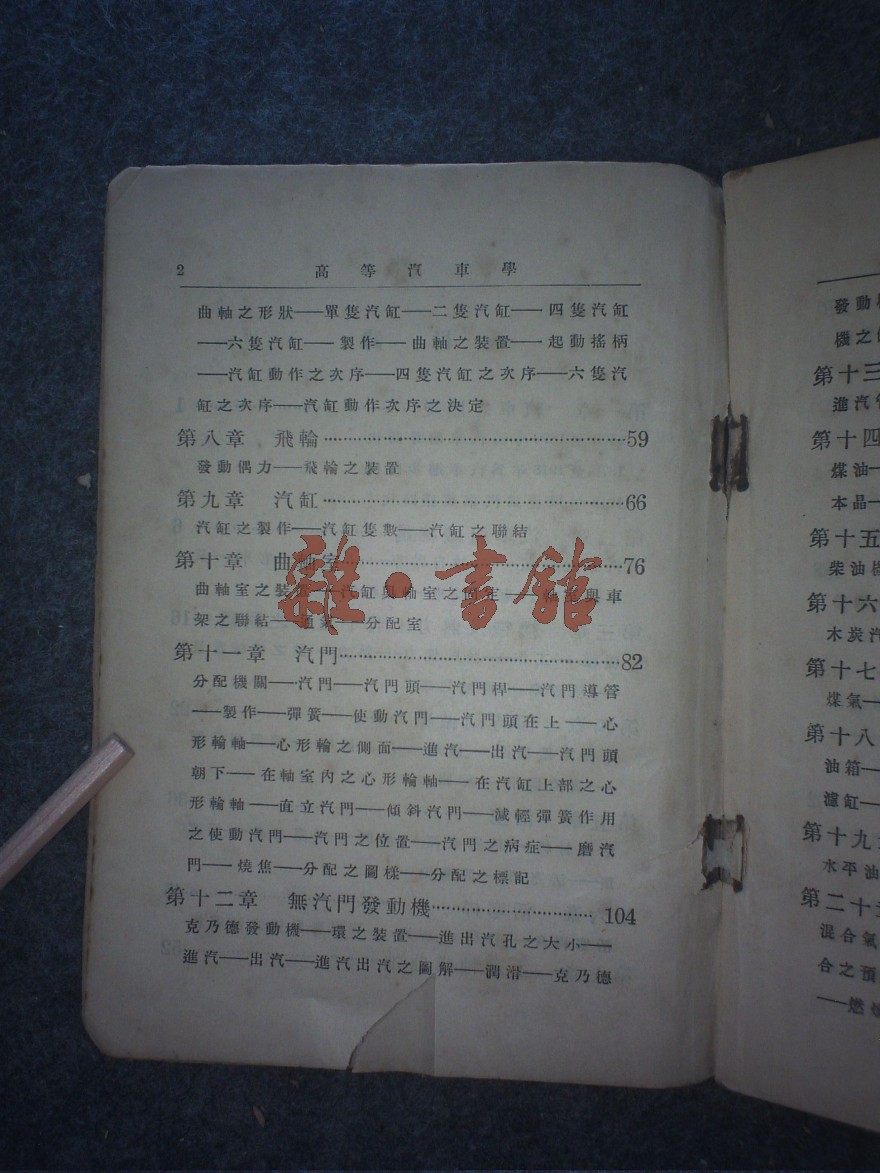 2 高等汽車學
曲軸之形狀——單隻汽缸——二隻汽缸——四隻汽缸
——六隻汽缸——製作——曲軸之裝置——起動搖柄
——汽缸動作之次序——四隻汽缸之次序——六隻汽
缸之次序——汽缸動作次序之決定
第八章 飛輪……59
發動偶力——飛輪之裝置
第九章 汽缸……66
汽缸之製作——汽缸隻數——汽缸之聯結
第十章 曲軸室……76
曲軸室之裝置——汽缸與軸室之固定——軸室與車
架之聯結——通氣——分配室
第十一章 汽門……82
分配機關——汽門——汽門頭——汽門桿——汽門導管
——製作——彈簧——使動汽門——汽門頭在上——心
形輪軸——心形輪之側面——進汽——出汽——汽門頭
朝下——在軸室內之心形輪軸——在汽缸上部之心
形輪軸——直立汽門——傾斜汽門——減輕彈簧作用
之使動汽門——汽門之位置——汽門之病症——磨汽
門——燒焦——分配之圖樣——分配之標記
第十二章 無汽門發動機……104
克乃德發動機——環之裝置——進出汽孔之大小——
進汽——出汽——進汽出汽之圖解——潤滑——克乃德
雜·書館
發動
機之
第十三
進汽
第十四
煤油—
本品—
第十五
柴油
第十六
木炭汽
第十七
煤氣—
第十八
油箱—
濾缸—
第十九
水平油
第二十
混合氣
合之預
——燃